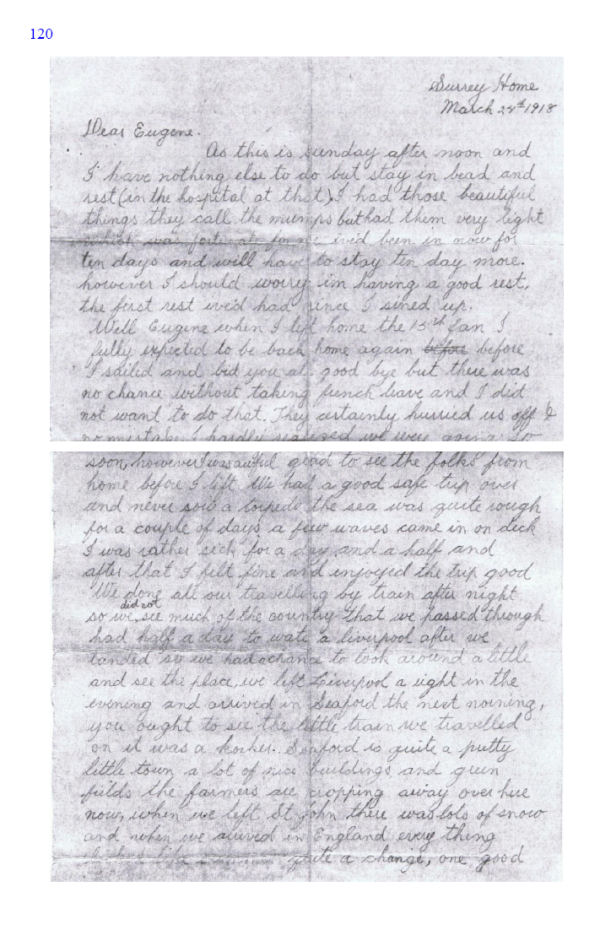 120
Surrey Home
March 24th 1918
Dear Eugene.
As this is sunday after noon and
I have nothing else to do but stay in bead and
rest (in the hospital at that) I had those beautiful
things they call the mumps but had them very light
which was for me ive'd been in now for
ten days and will have to stay ten day more.
however I should worry im having a good rest,
the first rest ive'd had since I sined up.
Well Eugene when I left home the 15th Jan I
fully expected to be back home again befor before
I sailed and bid you all good bye but there was
no chance without taking french leave and I did
not want to do that. They certainly hurried us off &
no mistake I hardly we were going so
soon, however I was awful glad to see the folks from
home before I left. We had a good safe trip over
and never saw a torpedo the sea was quite rough
for a couple of days a few waves came in on deck
I was rather sick for a day and a half and
after that I felt fine and enjoyed the trip good
We done all our travelling by train after night
so we did not see much of the country that we passed through
had half a day to wate a liverpool after we
landed so we had a chance to look around a little
and see the place, we left Liverpool a eight in the
evening and arrived in Seaford the next morning,
you ought to see the little train we travelled
on it was a corker. Seaford is quite a pretty
little town a lot of nice buildings and green
fields the farmers are cropping away over here
now, when we left St John there was lots of snow
and when we arived in England every thing
quite a change, one good